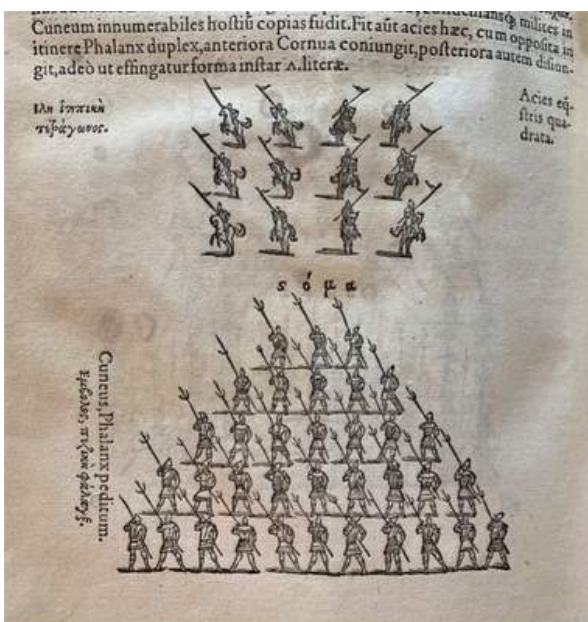 milites in
Cuneum innumerabiles hostiũ copias fudit. Fit aũt acies hæc, cum opposita in
itinere Phalanx duplex, anteriora Cornua coniungit, posteriora autem disiun-
git, adeò ut effingatur forma instar Λ. literæ.
ἴλη ἱππικὴ
τετράγωνος.
Acies eq̃-
stris qua-
drata.
ς ό μ α
Cuneus, Phalanx peditum.
Εμβολος, πεζικὴ φάλαγξ.